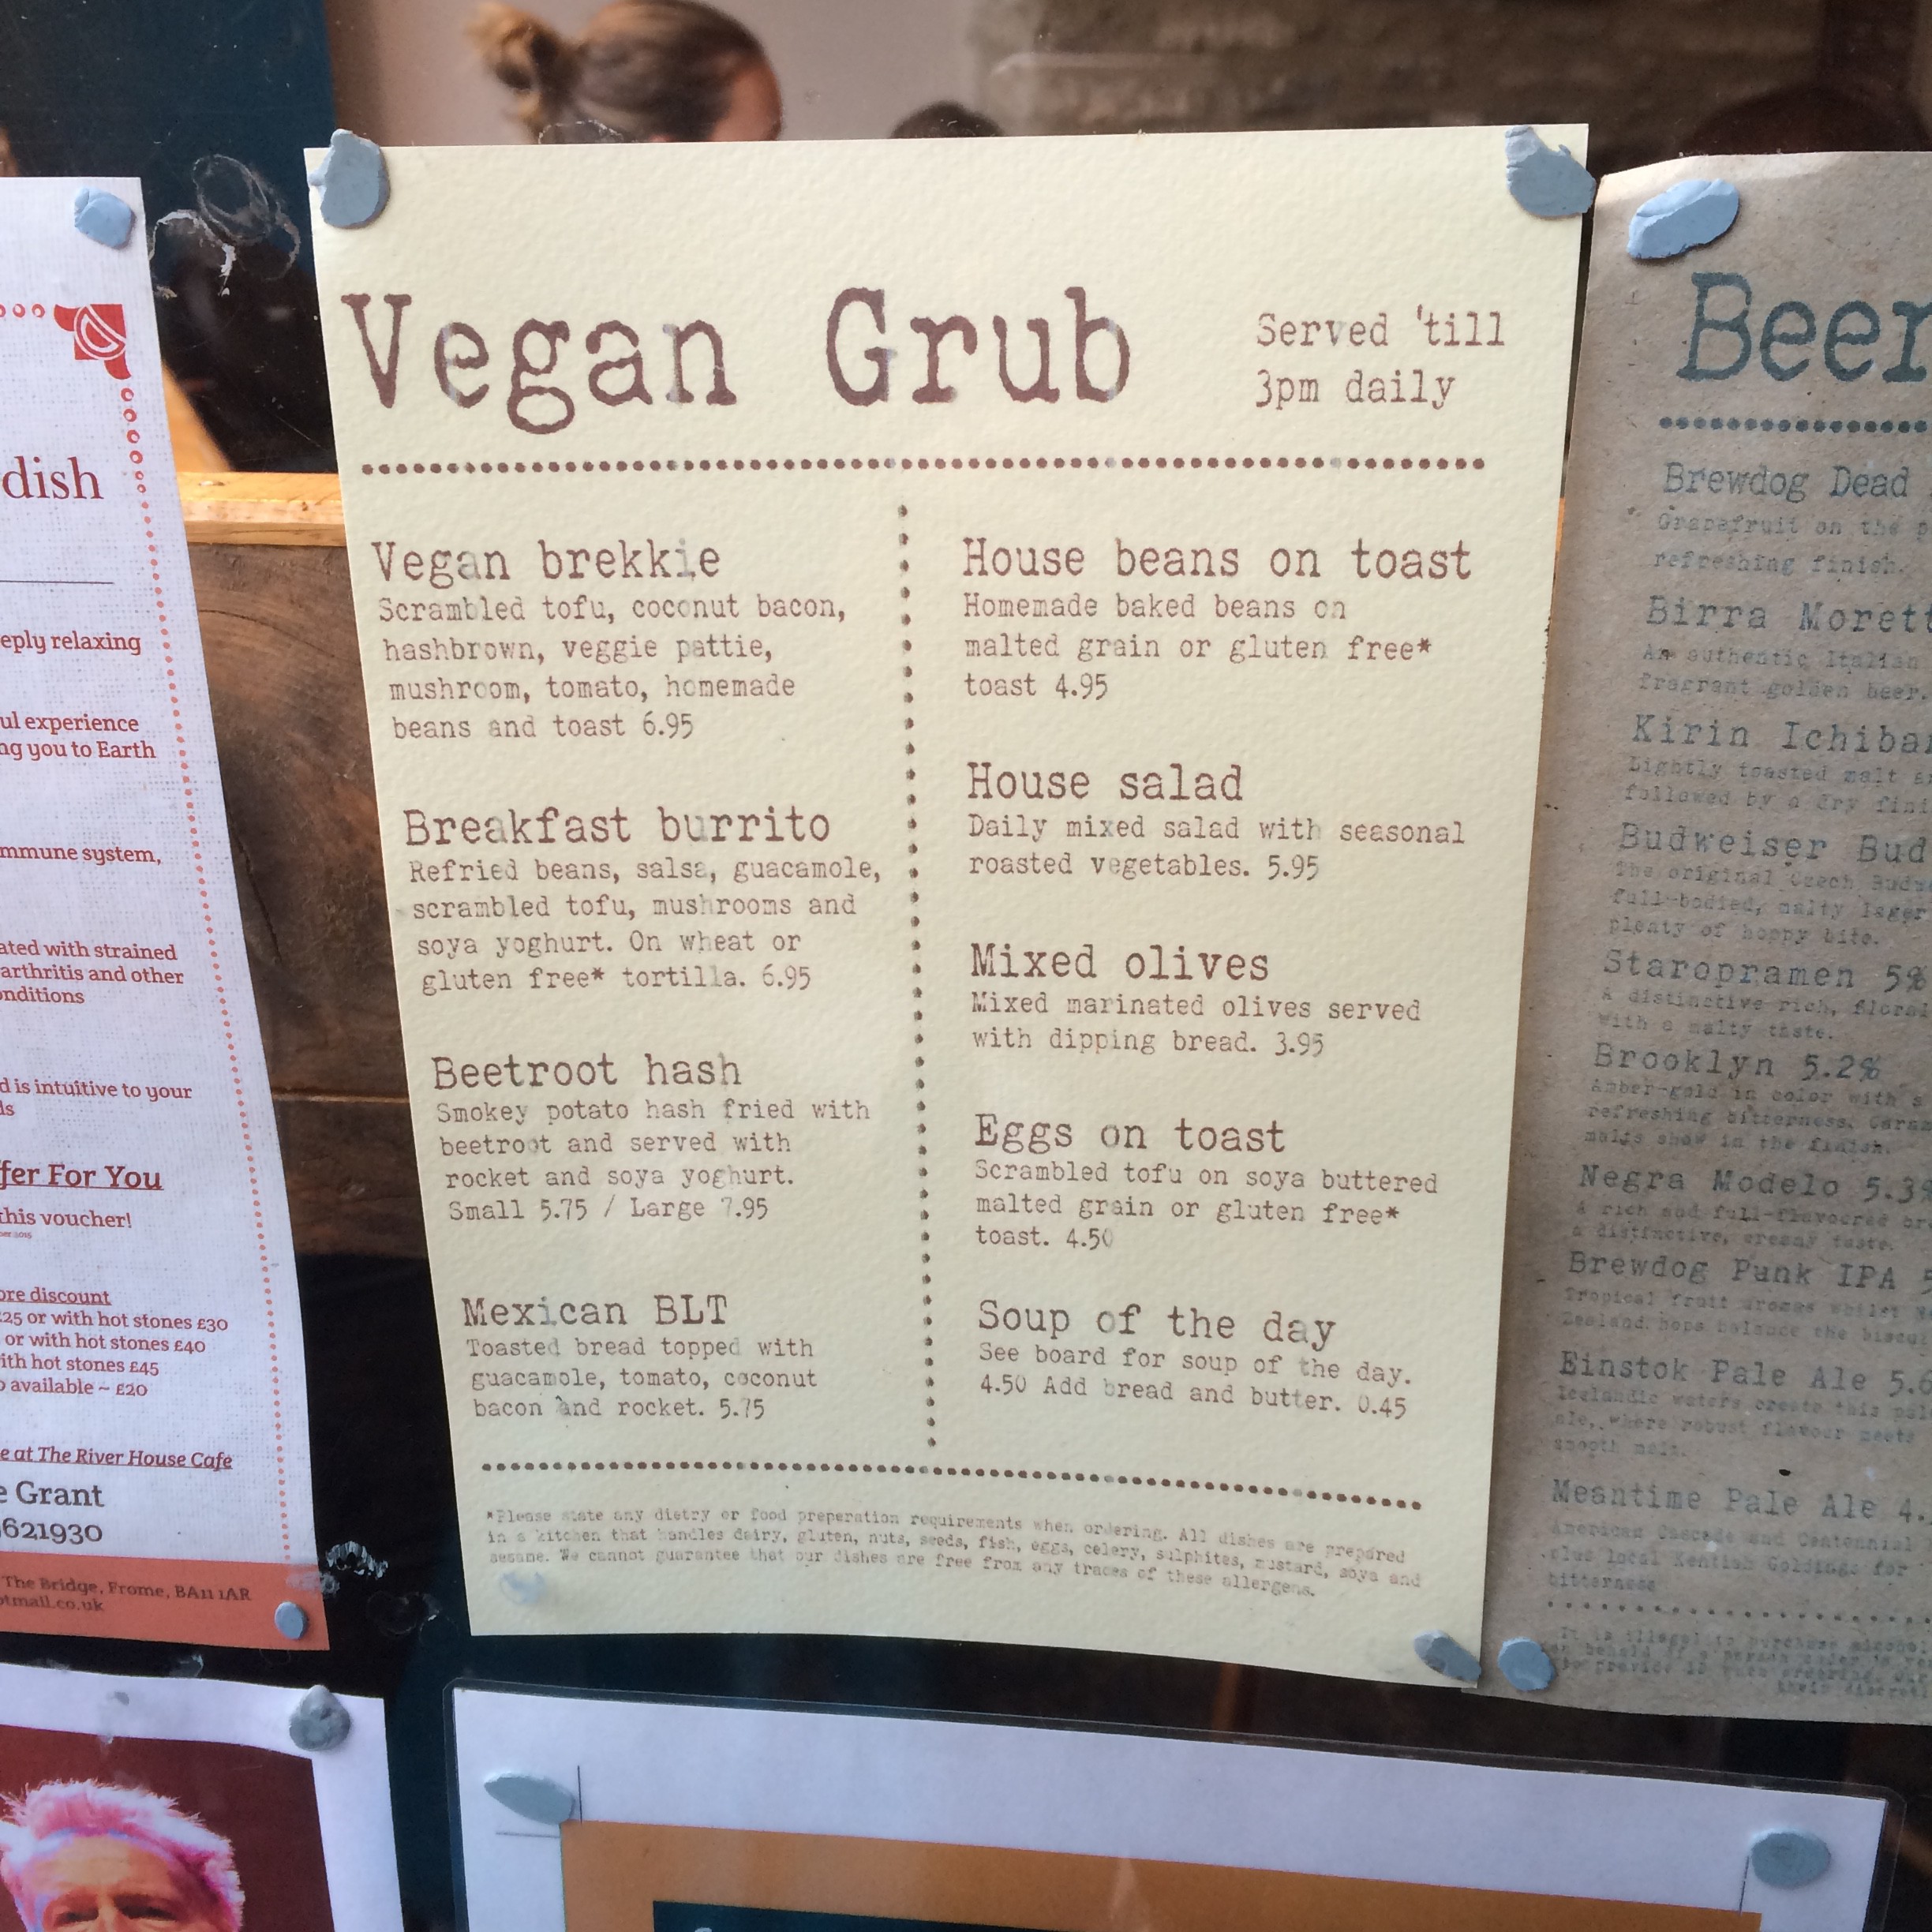 dish
eply relaxing
ul experience
ng you to Earth
mmune system,
ated with strained
arthritis and other
onditions
d is intuitive to your
ds
ffer For You
this voucher!
ore discount
£25 or with hot stones £30
or with hot stones £40
ith hot stones £45
available ~ £20
e at The River House Cafe
e Grant
621930
The Bridge, Frome, BA11 1AR
otmail.co.uk
Vegan Grub
Served 'till
3pm daily
Vegan brekkie
Scrambled tofu, coconut bacon,
hashbrown, veggie pattie,
mushroom, tomato, homemade
beans and toast 6.95
Breakfast burrito
Refried beans, salsa, guacamole,
scrambled tofu, mushrooms and
soya yoghurt. On wheat or
gluten free* tortilla. 6.95
Beetroot hash
Smokey potato hash fried with
beetroot and served with
rocket and soya yoghurt.
Small 5.75 / Large 7.95
Mexican BLT
Toasted bread topped with
guacamole, tomato, coconut
bacon and rocket. 5.75
House beans on toast
Homemade baked beans on
malted grain or gluten free*
toast 4.95
House salad
Daily mixed salad with seasonal
roasted vegetables. 5.95
Mixed olives
Mixed marinated olives served
with dipping bread. 3.95
Eggs on toast
Scrambled tofu on soya buttered
malted grain or gluten free*
toast. 4.50
Soup of the day
See board for soup of the day.
4.50 Add bread and butter. 0.45
*Please state any dietry or food preperation requirements when ordering. All dishes are prepared
in a kitchen that handles dairy, gluten, nuts, seeds, fish, eggs, celery, sulphites, mustard, soya and
sesame. We cannot guarantee that our dishes are free from any traces of these allergens.
Beer
Brewdog Dead
Grapefruit on the p
refreshing finish.
Birra Morett
An authentic Italian
fragrant golden beer.
Kirin Ichiban
Lightly toasted malt
followed by a dry fini
Budweiser Bud
The original Czech Budw
full-bodied, malty lager
plenty of hoppy bite.
Staropramen 5%
A distinctive rich, floral
with a malty taste.
Brooklyn 5.2%
Amber-gold in color with a
refreshing bitterness. Caram
malts show in the finish.
Negra Modelo 5.3%
A rich and full-flavoured
a distinctive, creamy taste.
Brewdog Punk IPA 5
Tropical fruit aromas whilst
Zealand hops balance the biscu
Einstok Pale Ale 5.6
Icelandic waters create this pale
ale, where robust flavour meets
smooth malt.
Meantime Pale Ale 4.
American Cascade and Centennial
plus local Kentish Goldings for
bitterness
It is illegal to purchase alcohol